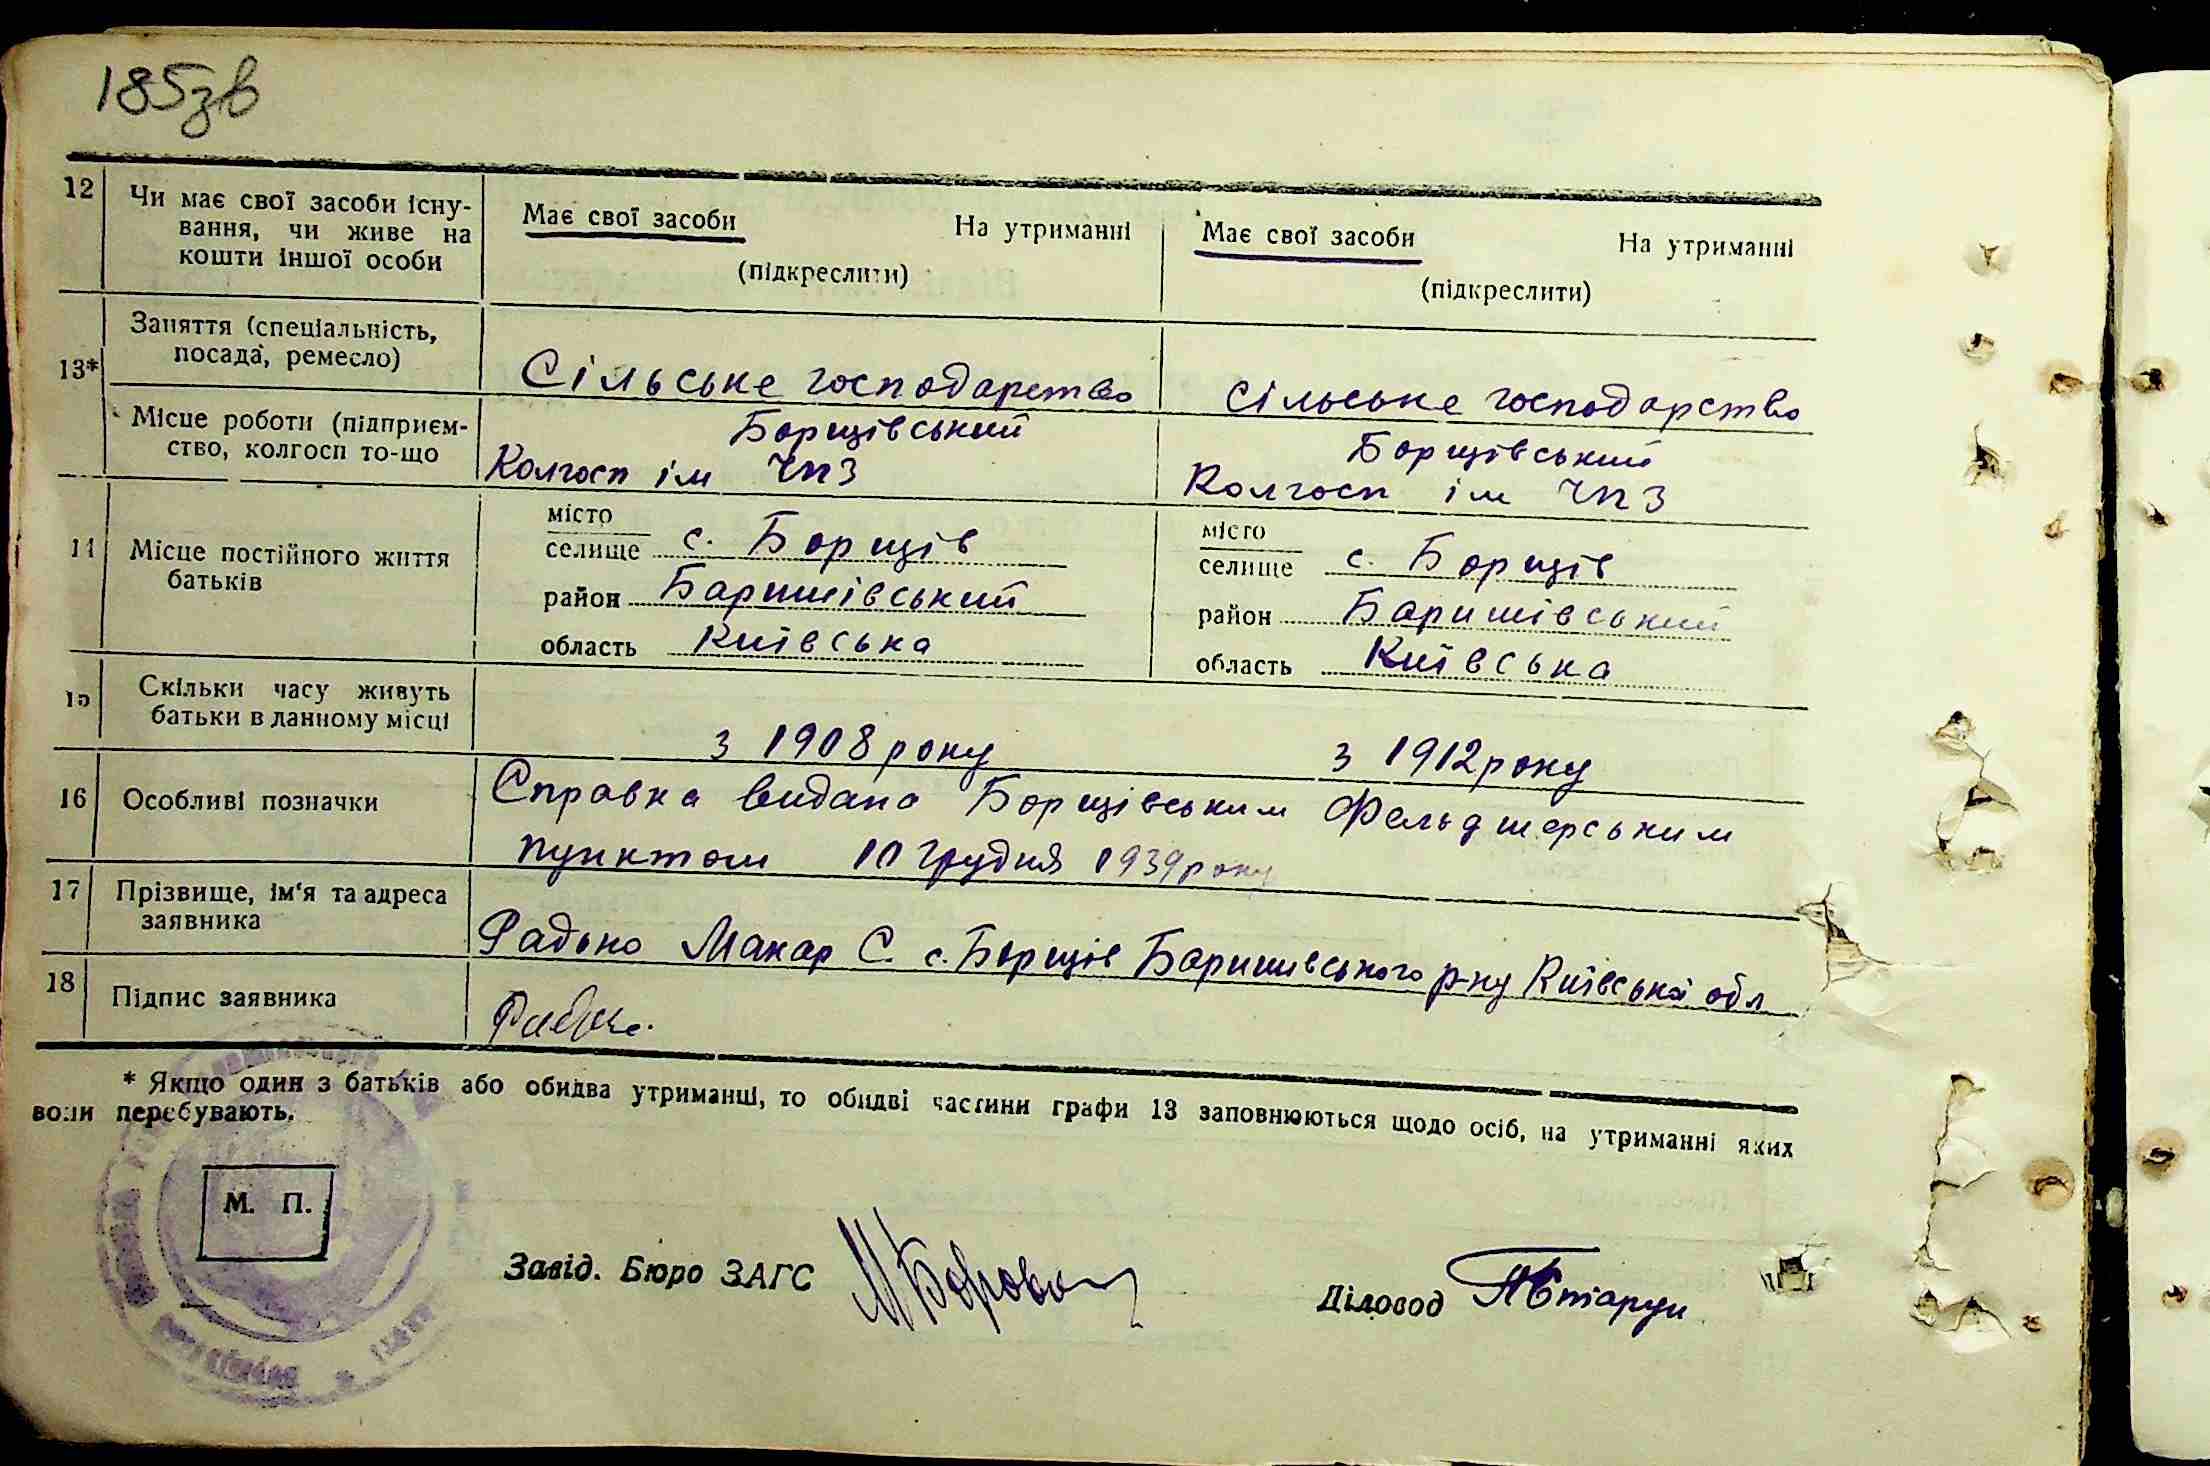 185зв
12 Чи має свої засоби існу-
вання, чи живе на
кошти іншої особи
Має свої засоби На утриманні
(підкреслити)
Має свої засоби На утриманні
(підкреслити)
13* Заняття (спеціальність,
посада, ремесло)
Сільське господарство
сільське господарство
Місце роботи (підприєм-
ство, колгосп то-що
Борщівський
Колгосп ім ЧПЗ
Борщівський
Колгосп ім ЧПЗ
14 Місце постійного життя
батьків
місто
селище с. Борщів
район Баришівський
область Київська
місто
селище с. Борщів
район Баришівський
область Київська
15 Скільки часу живуть
батьки в данному місці
з 1908 року
з 1912 року
16 Особливі позначки
Справка видана Борщівським Фельдшерським
пунктом 10 грудня 1939 року
17 Прізвище, ім'я та адреса
заявника
Радько Макар С. с. Борщів Баришівського р-ну Київська обл
18 Підпис заявника
* Якщо один з батьків або обидва утриманні, то обидві частини графи 13 заповнюються щодо осіб, на утриманні яких
вони перебувають.
М. П.
Завід. Бюро ЗАГС
Діловод